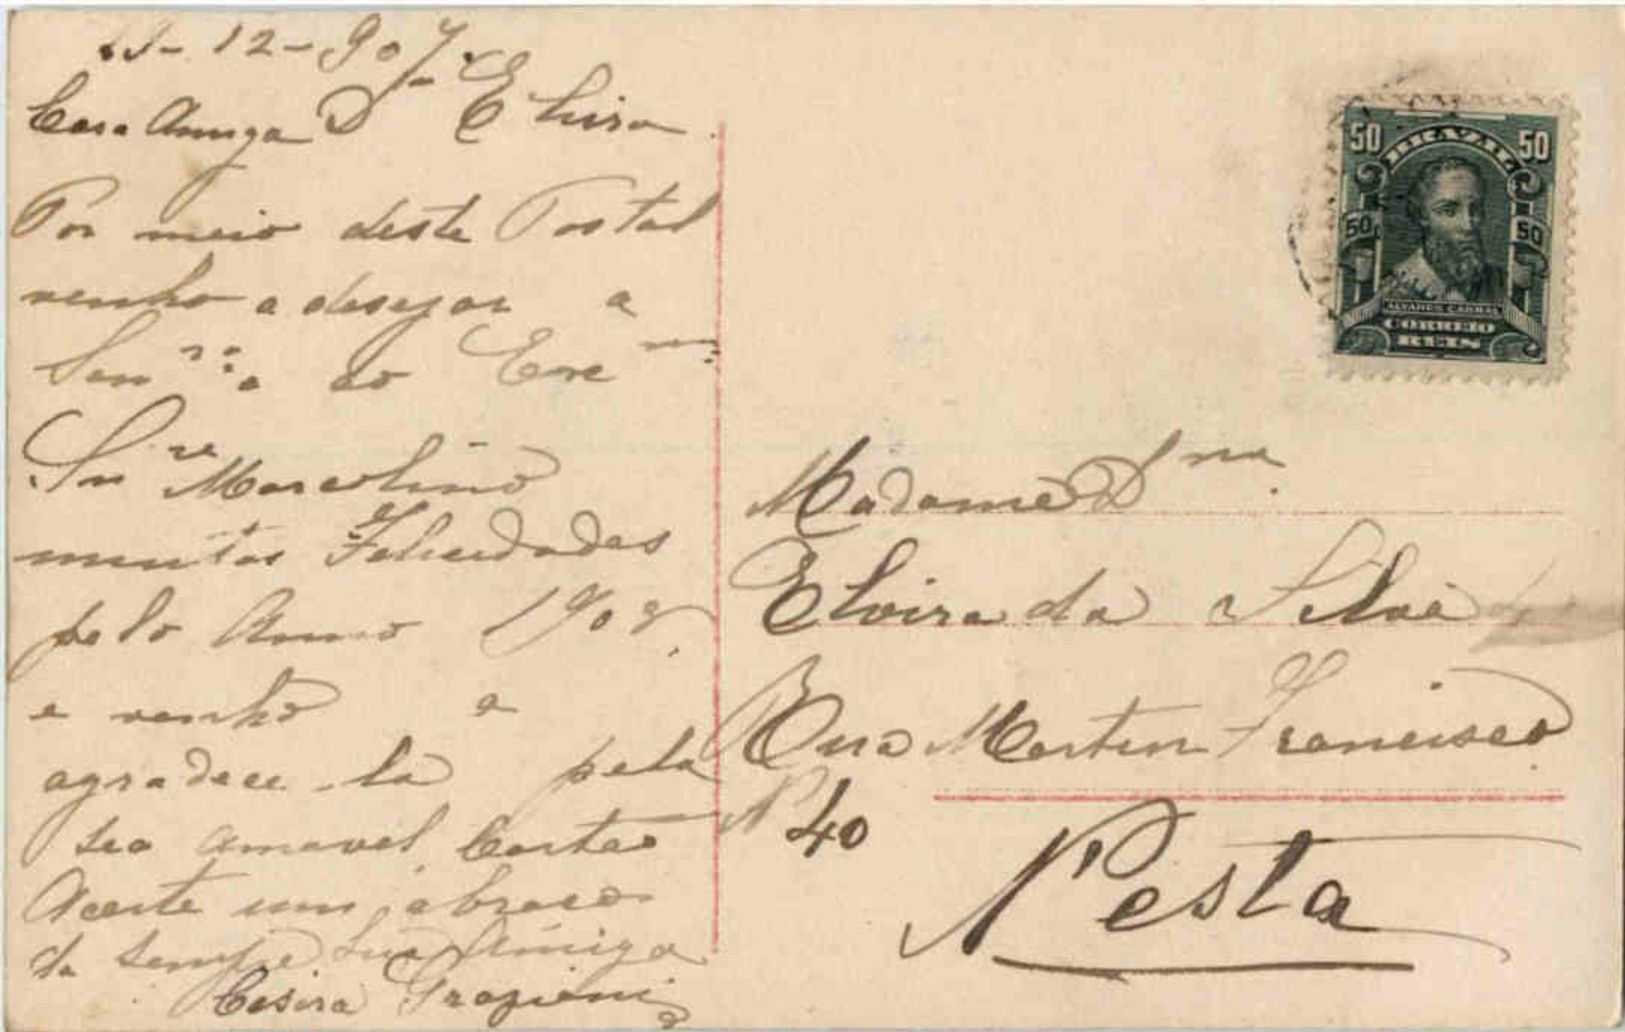 -12-907
Cara Amiga Dª Elvira
Por meio deste Postal
venho a desejar a
Senra. e ao Exmo
Snr Marcolino
muitas Felicidades
pelo Anno 1908,
e venho a
agradece-la pela
sua amavel Cartão
Aceite um abraço
da sempre sua Amiga
Cesira Graziani
BRAZIL
50 50
50 50
ALVARES CABRAL
CORREIO
REIS
Madame Dna.
Elvira da Silva
Rua Martin Francisco
N 40
Nesta